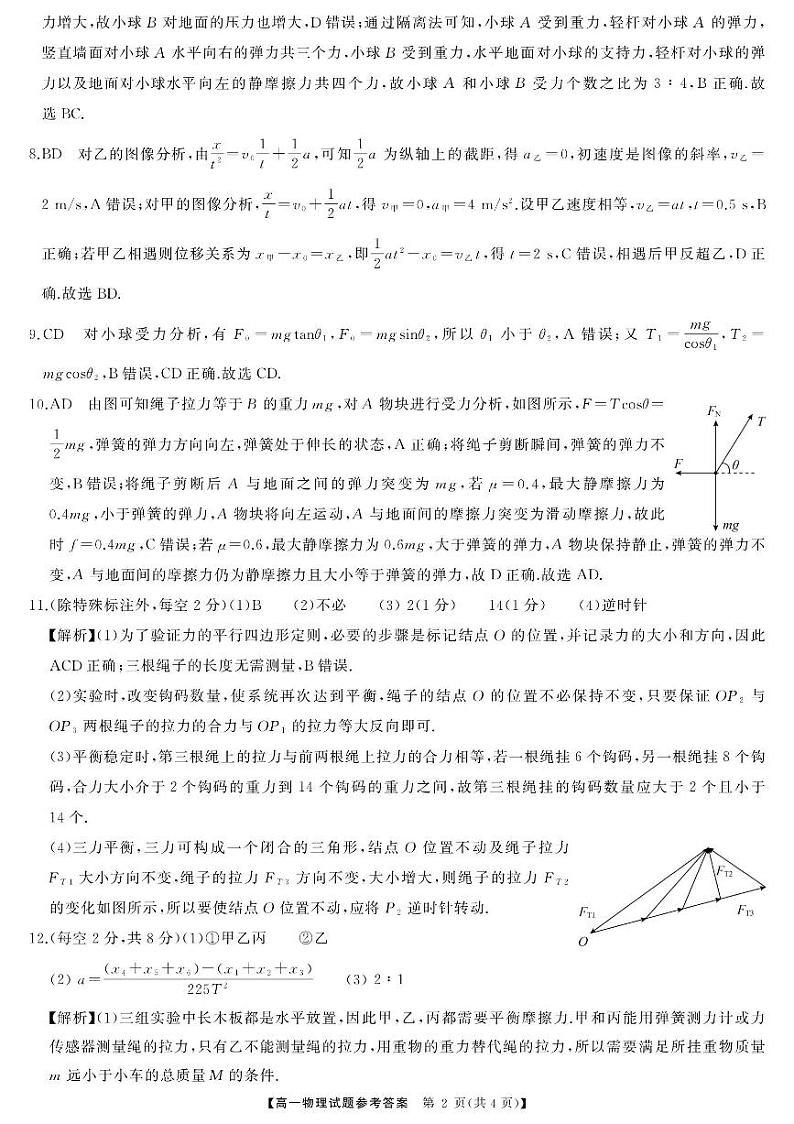 力增大,故小球 B 对地面的压力也增大,D 错误;通过隔离法可知,小球 A 受到重力,轻杆对小球 A 的弹力,
竖直墙面对小球 A 水平向右的弹力共三个力,小球 B 受到重力,水平地面对小球的支持力,轻杆对小球的弹
力以及地面对小球水平向左的静摩擦力共四个力,故小球 A 和小球 B 受力个数之比为 3∶4,B 正确.故
选 BC.
8.BD 对乙的图像分析,由x/t²=v₀1/t+1/2a,可知1/2a 为纵轴上的截距,得 a乙=0,初速度是图像的斜率,v乙=
2 m/s,A 错误;对甲的图像分析,x/t=v₀+1/2at,得 v甲=0,a甲=4 m/s².设甲乙速度相等,v乙=at,t=0.5 s,B
正确;若甲乙相遇则位移关系为 x甲-x₀=x乙,即1/2at²-x₀=v乙t,得 t=2 s,C 错误,相遇后甲反超乙,D 正
确.故选 BD.
9.CD 对小球受力分析,有 F₀=mgtanθ₁,F₀=mgsinθ₂,所以 θ₁ 小于 θ₂,A 错误;又 T₁=mg/cosθ₁,T₂=
mgcosθ₂,B 错误,CD 正确.故选 CD.
10.AD 由图可知绳子拉力等于 B 的重力 mg,对 A 物块进行受力分析,如图所示,F=Tcosθ=
1/2mg,弹簧的弹力方向向左,弹簧处于伸长的状态,A 正确;将绳子剪断瞬间,弹簧的弹力不
变,B 错误;将绳子剪断后 A 与地面之间的弹力突变为 mg,若 μ=0.4,最大静摩擦力为
0.4mg,小于弹簧的弹力,A 物块将向左运动,A 与地面间的摩擦力突变为滑动摩擦力,故此
时 f=0.4mg,C 错误;若 μ=0.6,最大静摩擦力为 0.6mg,大于弹簧的弹力,A 物块保持静止,弹簧的弹力不
变,A 与地面间的摩擦力仍为静摩擦力且大小等于弹簧的弹力,故 D 正确.故选 AD.
FN
T
F
θ
mg
11.(除特殊标注外,每空 2 分)(1)B (2)不必 (3) 2(1 分) 14(1 分) (4)逆时针
【解析】(1)为了验证力的平行四边形定则,必要的步骤是标记结点 O 的位置,并记录力的大小和方向,因此
ACD 正确;三根绳子的长度无需测量,B 错误.
(2)实验时,改变钩码数量,使系统再次达到平衡,绳子的结点 O 的位置不必保持不变,只要保证 OP₂ 与
OP₃ 两根绳子的拉力的合力与 OP₁ 的拉力等大反向即可.
(3)平衡稳定时,第三根绳上的拉力与前两根绳上拉力的合力相等,若一根绳挂 6 个钩码,另一根绳挂 8 个钩
码,合力大小介于 2 个钩码的重力到 14 个钩码的重力之间,故第三根绳挂的钩码数量应大于 2 个且小于
14 个.
(4)三力平衡,三力可构成一个闭合的三角形,结点 O 位置不动及绳子拉力
FT1 大小方向不变,绳子的拉力 FT3 方向不变,大小增大,则绳子的拉力 FT2
的变化如图所示,所以要使结点 O 位置不动,应将 P₂ 逆时针转动.
FT2
FT1
FT3
O
12.(每空 2 分,共 8 分)(1)①甲乙丙 ②乙
(2) a=(x₄+x₅+x₆)-(x₁+x₂+x₃)/225T² (3) 2∶1
【解析】(1)三组实验中长木板都是水平放置,因此甲,乙,丙都需要平衡摩擦力.甲和丙能用弹簧测力计或力
传感器测量绳的拉力,只有乙不能测量绳的拉力,用重物的重力替代绳的拉力,所以需要满足所挂重物质量
m 远小于小车的总质量 M 的条件.
【高一物理试题参考答案 第 2 页(共 4 页)】